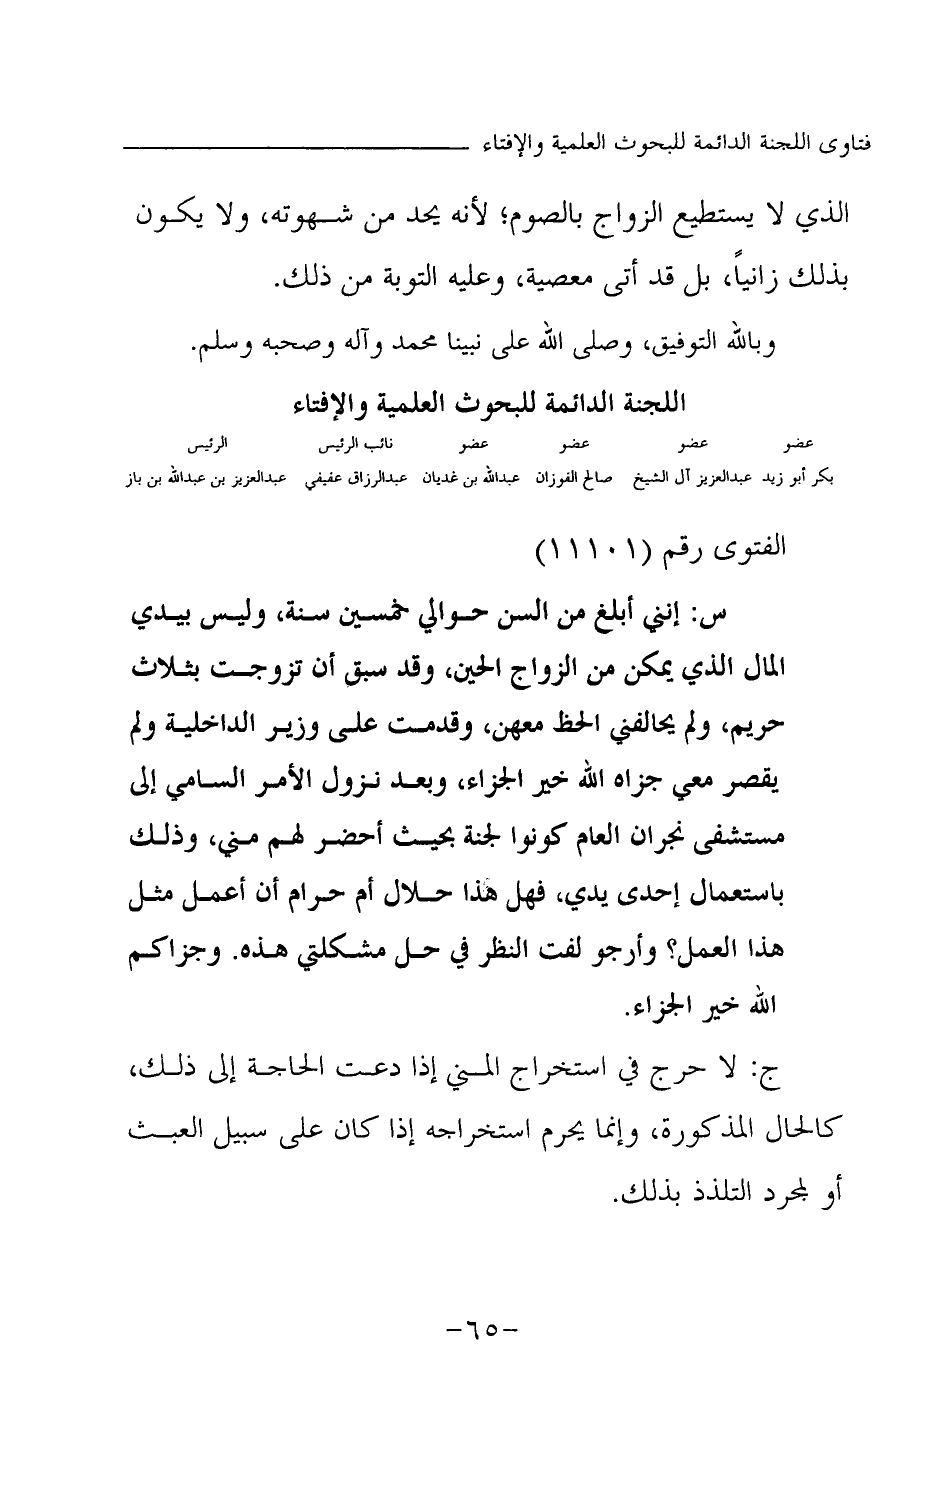 فتاوى اللجنة الدائمة للبحوث العلمية والإفتاء
الذي لا يستطيع الزواج بالصوم؛ لأنه يحد من شـهوته، ولا يكـون
بذلك زانياً، بل قد أتى معصية، وعليه التوبة من ذلك.
وبالله التوفيق، وصلى الله على نبينا محمد وآله وصحبه وسلم.
اللجنة الدائمة للبحوث العلمية والإفتاء
عضو عضو عضو عضو نائب الرئيس الرئيس
بكر أبو زيد عبدالعزيز آل الشيخ صالح الفوزان عبدالله بن غديان عبدالرزاق عفيفي عبدالعزيز بن عبدالله بن باز
الفتوى رقم (١١١٠١)
س: إنني أبلغ من السن حـوالي خمسـين سـنة، وليـس بيـدي
المال الذي يمكن من الزواج الحين، وقد سبق أن تزوجـت بثـلاث
حريم، ولم يحالفني الحظ معهن، وقدمـت علـى وزيـر الداخليـة ولم
يقصر معي جزاه الله خير الجزاء، وبعـد نـزول الأمـر السـامي إلى
مستشفى نجران العام كونوا لجنة بحيـث أحضـر لهـم مـني، وذلـك
باستعمال إحدى يدي، فهل هذا حـلال أم حـرام أن أعمـل مثـل
هذا العمل؟ وأرجو لفت النظر في حـل مشـكلتي هـذه. وجزاكـم
الله خير الجزاء.
ج: لا حرج في استخراج المـني إذا دعـت الحاجـة إلى ذلـك،
كالحال المذكورة، وإنما يحرم استخراجه إذا كان على سبيل العبـث
أو لمجرد التلذذ بذلك.
-٦٥-